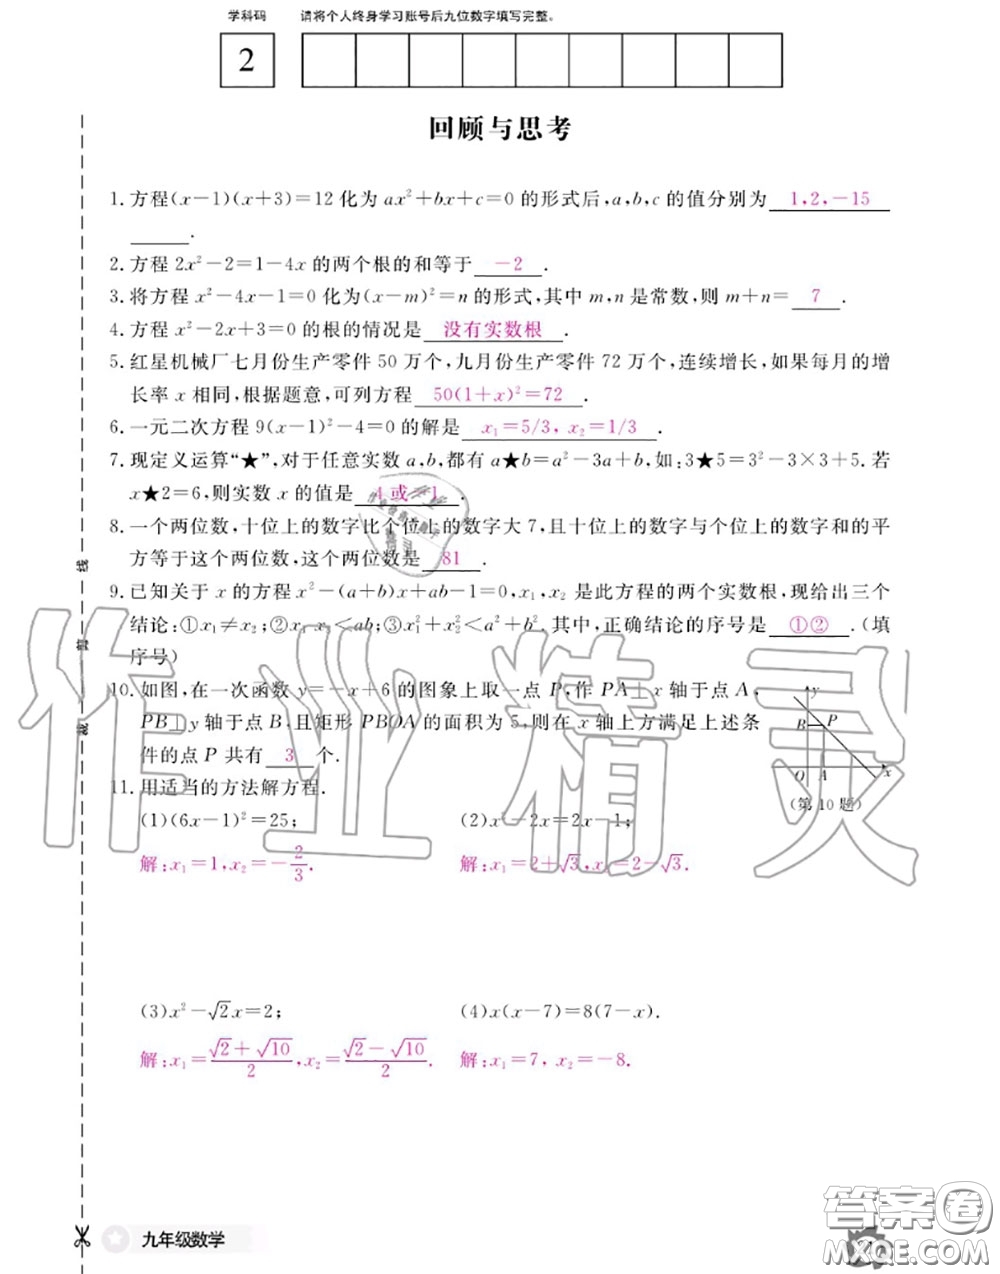 学科码 请将个人终身学习账号后九位数字填写完整。
2
回顾与思考
1.方程(x-1)(x+3)=12化为ax²+bx+c=0的形式后,a,b,c的值分别为 1,2,-15
______.
2.方程2x²-2=1-4x的两个根的和等于 -2 .
3.将方程x²-4x-1=0化为(x-m)²=n的形式,其中m,n是常数,则m+n= 7 .
4.方程x²-2x+3=0的根的情况是 没有实数根 .
5.红星机械厂七月份生产零件50万个,九月份生产零件72万个,连续增长,如果每月的增
长率x相同,根据题意,可列方程 50(1+x)²=72 .
6.一元二次方程9(x-1)²-4=0的解是 x₁=5/3, x₂=1/3 .
7.现定义运算“★”,对于任意实数a,b,都有a★b=a²-3a+b,如:3★5=3²-3×3+5.若
x★2=6,则实数x的值是 4或-1 .
8.一个两位数,十位上的数字比个位上的数字大7,且十位上的数字与个位上的数字和的平
方等于这个两位数,这个两位数是 81 .
9.已知关于x的方程x²-(a+b)x+ab-1=0,x₁,x₂是此方程的两个实数根,现给出三个
结论:①x₁≠x₂;②x₁x₂<ab;③x₁²+x₂²<a²+b².其中,正确结论的序号是 ①② .(填
序号)
10.如图,在一次函数y=-x+6的图象上取一点P,作PA⊥x轴于点A,
PB⊥y轴于点B,且矩形PBOA的面积为5,则在x轴上方满足上述条
件的点P共有 3 个.
y
B P
O A x
(第10题)
11.用适当的方法解方程.
(1)(6x-1)²=25; (2)x²-2x=2x-1;
解:x₁=1,x₂=-2/3. 解:x₁=2+√3,x₂=2-√3.
(3)x²-√2x=2; (4)x(x-7)=8(7-x).
解:x₁=(√2+√10)/2,x₂=(√2-√10)/2. 解:x₁=7, x₂=-8.
线
剪
裁
作业精灵
九年级数学
答案圈
MXQE.COM